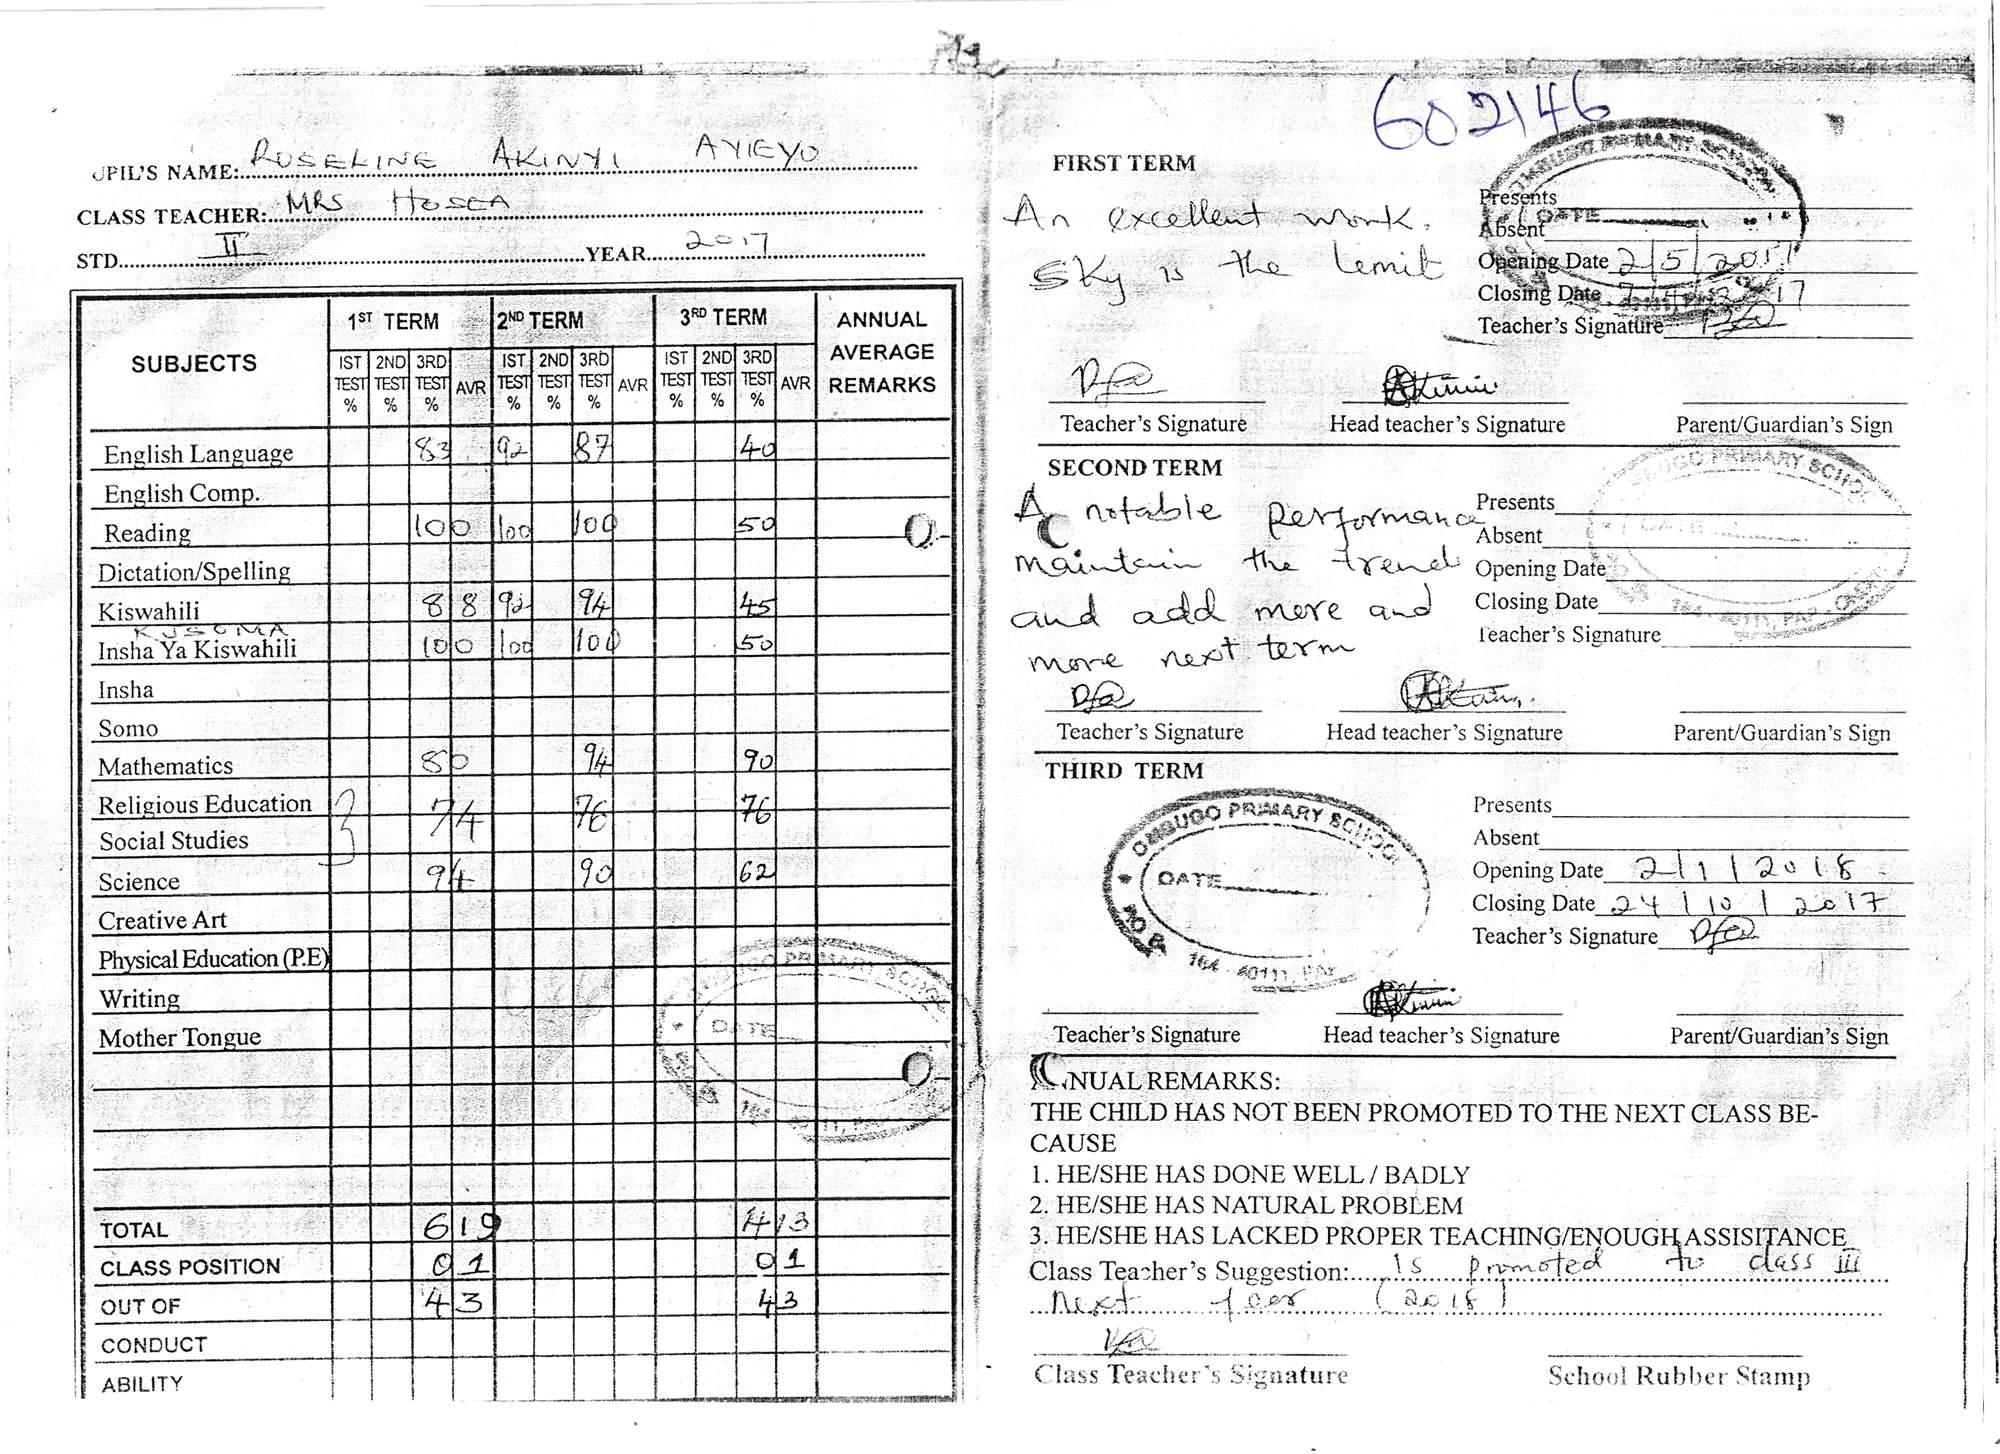 602146
UPIL'S NAME: ROSELINE AKINYI AYIEYO
CLASS TEACHER: MRS HOSEA
STD II YEAR 2017
SUBJECTS 1ST TERM 2ND TERM 3RD TERM ANNUAL AVERAGE REMARKS
IST TEST % 2ND TEST % 3RD TEST % AVR IST TEST % 2ND TEST % 3RD TEST % AVR IST TEST % 2ND TEST % 3RD TEST % AVR
English Language 83 92 87 40
English Comp.
Reading 100 100 100 50
Dictation/Spelling
Kiswahili 88 92 94 45
KUSOMA
Insha Ya Kiswahili 100 100 100 50
Insha
Somo
Mathematics 80 94 90
Religious Education 74 76 76
Social Studies
Science 94 90 62
Creative Art
Physical Education (P.E)
Writing
Mother Tongue
TOTAL 619 413
CLASS POSITION 01 01
OUT OF 43 43
CONDUCT
ABILITY
DATE
FIRST TERM
An excellent work.
Sky is the lemit
PRIMARY SCHOOL
DATE
Presents
Absent
Opening Date 2/5/2017
Closing Date
Teacher's Signature
Teacher's Signature Head teacher's Signature Parent/Guardian's Sign
SECOND TERM
A notable performance
maintain the trend
and add more and
more next term
PRIMARY SCHOOL
DATE
Presents
Absent
Opening Date
Closing Date
Teacher's Signature
Teacher's Signature Head teacher's Signature Parent/Guardian's Sign
THIRD TERM
OMBUGO PRIMARY SCHOOL
DATE
Presents
Absent
Opening Date 2/1/2018
Closing Date 24/10/2017
Teacher's Signature
Teacher's Signature Head teacher's Signature Parent/Guardian's Sign
ANNUAL REMARKS:
THE CHILD HAS NOT BEEN PROMOTED TO THE NEXT CLASS BE-
CAUSE
1. HE/SHE HAS DONE WELL / BADLY
2. HE/SHE HAS NATURAL PROBLEM
3. HE/SHE HAS LACKED PROPER TEACHING/ENOUGH ASSISITANCE
Class Teacher's Suggestion: Is promoted to class III
Next year (2018)
Class Teacher's Signature School Rubber Stamp